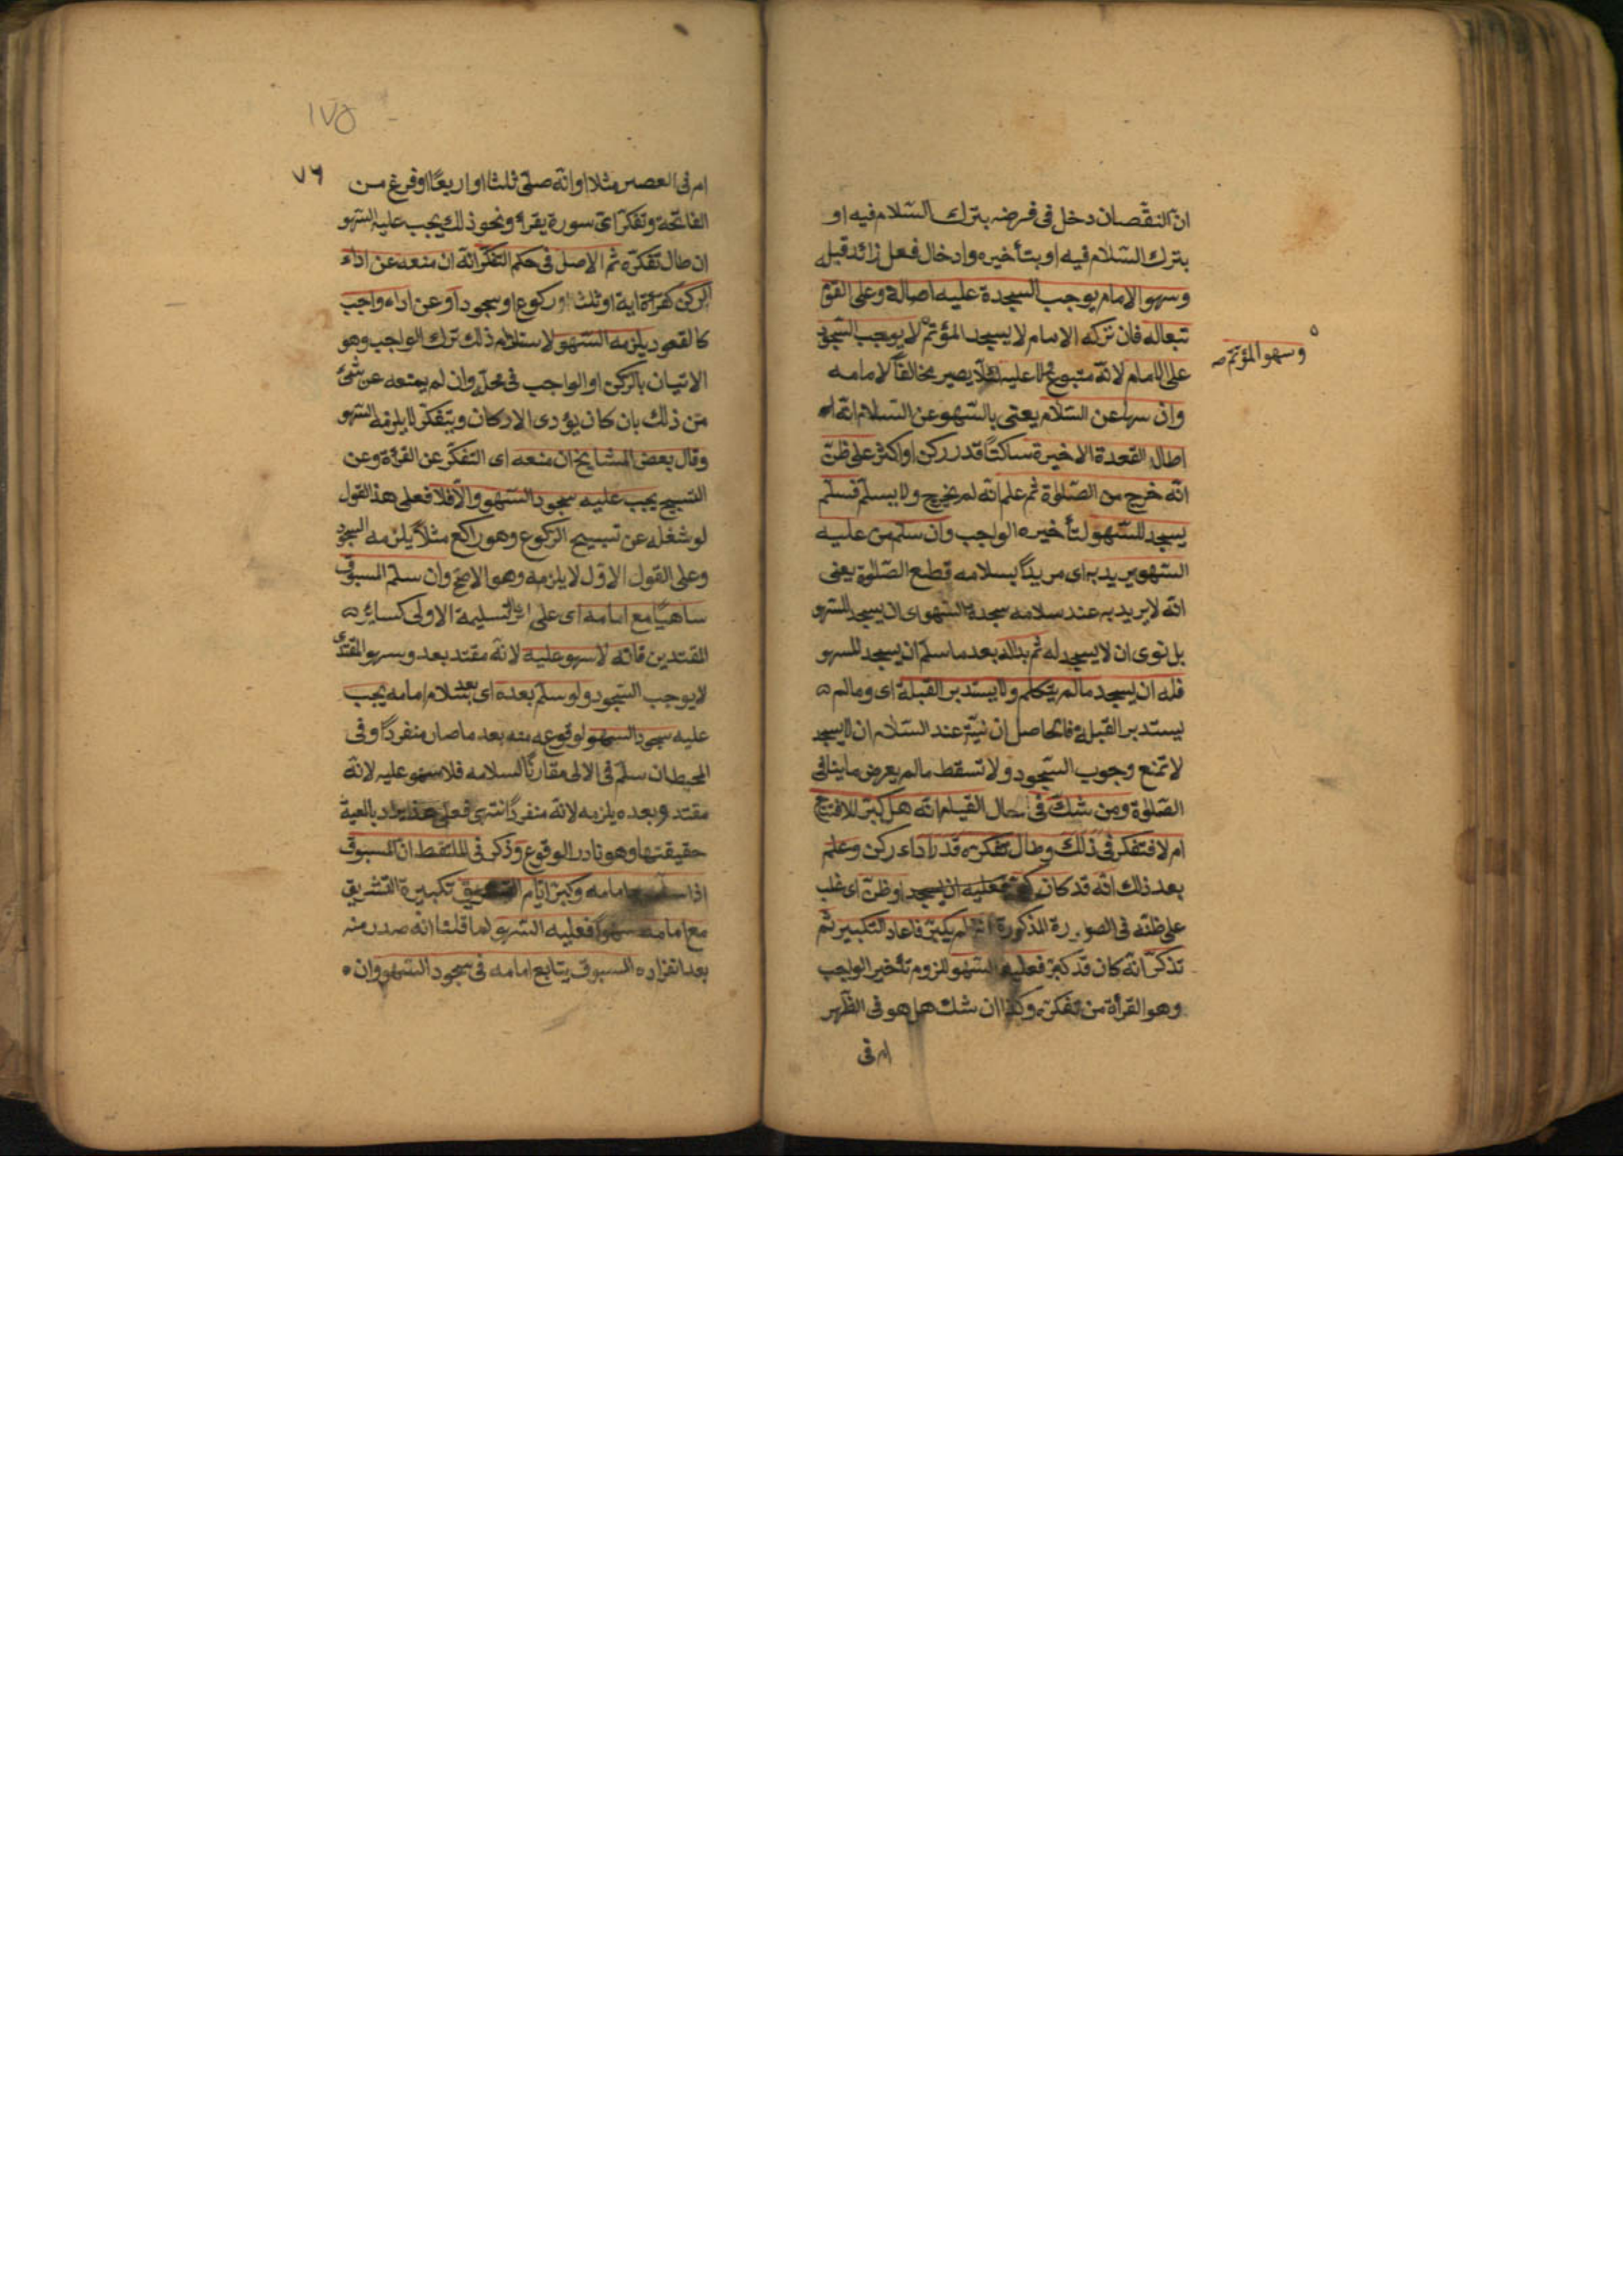 ان النقصان دخل في فرضه بترك السلام فيه او
بترك السلام فيه او بتأخيره وادخال فعل زائد قبله
وسهو الامام يوجب السجدة عليه اصالة وعلى القوم
تبعا له فان تركه الامام لا يسجد المؤتم لا يوجب السجود
وسهو المؤتم صح
على الامام لانه متبوع ولا عليه لئلا يصير مخالفا لامامه
وان سها عن السلام يعنى بالسهو عن السلام انه
اطال القعدة الاخيرة ساكتا قدر ركن او اكثر على ظن
انه خرج من الصلوة ثم علم انه لم يخرج ولا يسلم فسلم
يسجد للسهو لتأخيره الواجب وان سلم من عليه
السهو يريد به اى مريدا بسلامه قطع الصلوة يعنى
انه لا يريد به عند سلامه سجدة السهو اى ان يسجد للسهو
بل نوى ان لا يسجد له ثم بدا له بعد ما سلم ان يسجد للسهو
فله ان يسجد ما لم يتكلم ولا يستدبر القبلة اى وما لم
يستدبر القبلة فالحاصل ان نيته عند السلام ان لا يسجد
لا تمنع وجوب السجود ولا تسقط ما لم يعرض ما ينافى
الصلوة ومن شك فى حال القيام انه هل كبر للافتتاح
ام لا فتفكر في ذلك وطال تفكره قدر اداء ركن وعلم
بعد ذلك انه قد كان كبر فعليه ان يسجد او ظن اى غلب
على ظنه فى الصورة المذكورة انه لم يكبر فاعاد التكبير ثم
تذكر انه كان قد كبر فعليه السهو للزوم تأخير الواجب
وهو القرأة من تفكره وكذا ان شك هل هو فى الظهر
ام فى
١٧٥
٧٦
ام فى العصر مثلا او انه صلى ثلثا او اربعا او فرغ من
الفاتحة وتفكر اى سورة يقرأ ونحو ذلك يجب عليه السهو
ان طال تفكره ثم الاصل فى حكم التفكر انه ان منعه عن اداء
الركن كقرأة اية او ثلث او ركوع او سجود او عن اداء واجب
كالقعود يلزمه السهو لاستلزام ذلك ترك الواجب وهو
الاتيان بالركن او الواجب فى محله وان لم يمنعه عن شئ
من ذلك بان كان يؤدى الاركان ويتفكر لا يلزمه السهو
وقال بعض المشايخ ان منعه اى التفكر عن القرأة وعن
التسبيح يجب عليه سجود السهو والا فلا فعلى هذا القول
لو شغله عن تسبيح الركوع وهو راكع مثلا يلزمه السجود
وعلى القول الاول لا يلزمه وهو الاصح وان سلم المسبوق
ساهيا مع امامه اى على اثر التسليمة الاولى كسائر
المقتدين فانه لا سهو عليه لانه مقتد بعد وسهو المقتدى
لا يوجب السجود ولو سلم بعده اى بعد سلام امامه يجب
عليه سجود السهو لوقوعه منه بعد ما صار منفردا وفى
المحيط ان سلم فى الاولى مقارنا لسلامه فلا سهو عليه لانه
مقتد وبعده يلزمه لانه منفرد انتهى فعلى هذا يراد بالمعية
حقيقتها وهو نادر الوقوع وذكر فى الملتقط ان المسبوق
اذا سلم مع امامه وكبر ايام التشريق تكبيرة التشريق
مع امامه سهوا فعليه السهو لما قلنا انه صدر منه
بعد انفراده المسبوق يتابع امامه فى سجود السهو وان